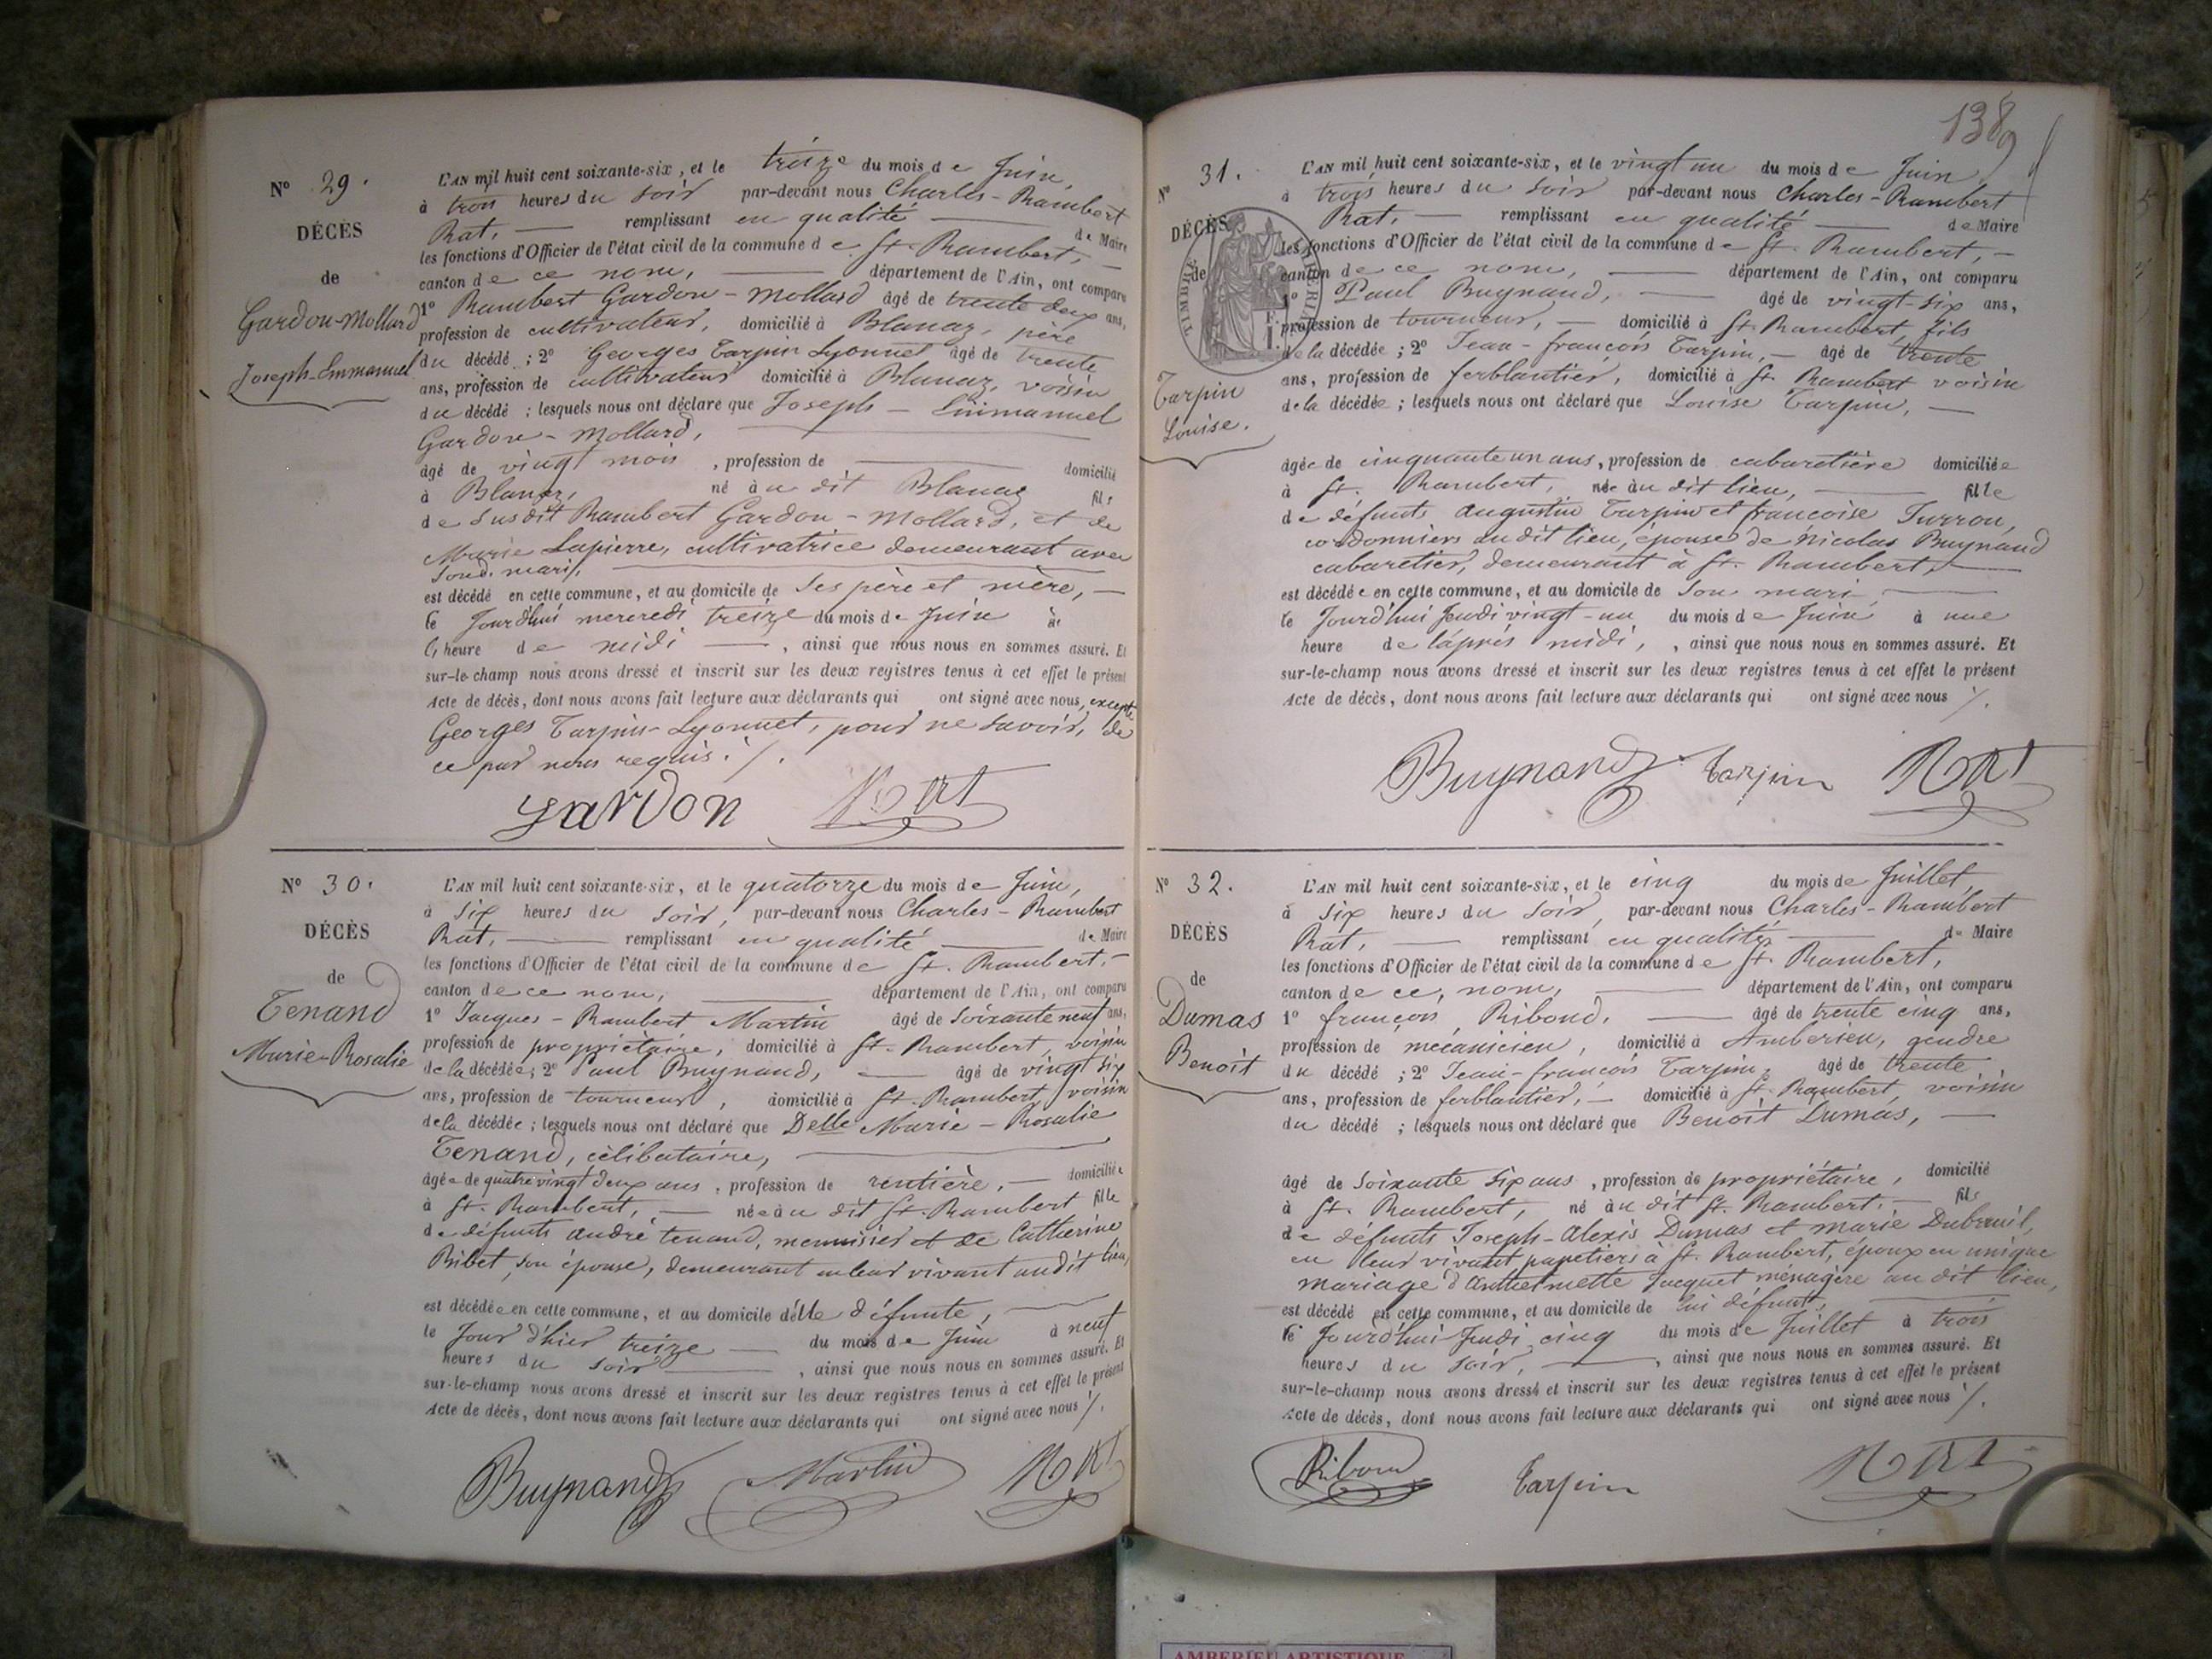 Nº 29.
DÉCÈS
de
Gardon-Mollard
Joseph-Emmanuel
L'AN mil huit cent soixante-six, et le treize du mois de Juin,
à trois heures du soir par-devant nous Charles-Rambert
Rat, remplissant en qualité de Maire
les fonctions d'Officier de l'état civil de la commune de St. Rambert,
canton de ce nom, département de l'Ain, ont comparu
1º Rambert Gardon-Mollard âgé de trente deux ans,
profession de cultivateur, domicilié à Blanaz, père
du décédé ; 2º Georges Tarpin Lyonnet âgé de trente
ans, profession de cultivateur domicilié à Blanaz, voisin
du décédé ; lesquels nous ont déclaré que Joseph-Emmanuel
Gardon-Mollard,
âgé de vingt mois, profession de domicilié
à Blanaz, né àu dit Blanaz fils
de susdit Rambert Gardon-Mollard, et de
Marie Lapierre, cultivatrice demeurant avec
soud. mari,
est décédé en cette commune, et au domicile de ses père et mère,
le Jourd'hui mercredi treize du mois de Juin à
heure de midi, ainsi que nous nous en sommes assuré. Et
sur-le-champ nous avons dressé et inscrit sur les deux registres tenus à cet effet le présent
Acte de décès, dont nous avons fait lecture aux déclarants qui ont signé avec nous, excepté
Georges Tarpin-Lyonnet, pour ne savoir, de
ce par nous requis ./.
Gardon Rat
Nº 30.
DÉCÈS
de
Tenand
Marie-Rosalie
L'AN mil huit cent soixante-six, et le quatorze du mois de Juin,
à six heures du soir, par-devant nous Charles-Rambert
Rat, remplissant en qualité de Maire
les fonctions d'Officier de l'état civil de la commune de St. Rambert,
canton de ce nom, département de l'Ain, ont comparu
1º Jacques-Rambert Martin âgé de soixante neuf ans,
profession de propriétaire, domicilié à St. Rambert, voisin
de la décédée ; 2º Paul Buynand, âgé de vingt six
ans, profession de tourneur, domicilié à St. Rambert, voisin
de la décédée ; lesquels nous ont déclaré que Delle Marie-Rosalie
Tenand, célibataire,
âgée de quatre vingt deux ans, profession de rentière, domiciliée
à St. Rambert, née àu dit St. Rambert fille
de défunts andré tenand, menuisier et de Catherine
Ribet, son épouse, demeurant en leur vivant audit lieu,
est décédée en cette commune, et au domicile délle défunte,
le Jour d'hier treize du mois de Juin à neuf
heures du soir, ainsi que nous nous en sommes assuré. Et
sur-le-champ nous avons dressé et inscrit sur les deux registres tenus à cet effet le présent
Acte de décès, dont nous avons fait lecture aux déclarants qui ont signé avec nous ./.
Buynand Martin Rat
138
Nº 31.
DÉCÈS
de
TIMBRE
Tarpin
Louise.
L'AN mil huit cent soixante-six, et le vingt un du mois de Juin
à trois heures du soir par-devant nous Charles-Rambert
Rat, remplissant en qualité de Maire
les fonctions d'Officier de l'état civil de la commune de St. Rambert,
canton de ce nom, département de l'Ain, ont comparu
1º Paul Buynand, âgé de vingt-six ans,
profession de tourneur, domicilié à St. Rambert, fils
de la décédée ; 2º Jean-françois Tarpin, âgé de trente
ans, profession de ferblantier, domicilié à St. Rambert voisin
de la décédée ; lesquels nous ont déclaré que Louise Tarpin,
âgée de cinquante un ans, profession de cabaretière domiciliée
à St. Rambert, née àu dit lieu, fille
de défunts augustin Tarpin et françoise Jurron,
cordonniers audit lieu, épouse de Nicolas Buynand
cabaretier, demeurant à St. Rambert,
est décédée en cette commune, et au domicile de son mari
le Jourd'hui Jeudi vingt-un du mois de Juin à une
heure de l'après midi, ainsi que nous nous en sommes assuré. Et
sur-le-champ nous avons dressé et inscrit sur les deux registres tenus à cet effet le présent
Acte de décès, dont nous avons fait lecture aux déclarants qui ont signé avec nous ./.
Buynand Tarpin Rat
Nº 32.
DÉCÈS
de
Dumas
Benoît
L'AN mil huit cent soixante-six, et le cinq du mois de Juillet,
à six heures du soir, par-devant nous Charles-Rambert
Rat, remplissant en qualité de Maire
les fonctions d'Officier de l'état civil de la commune de St. Rambert,
canton de ce, nom, département de l'Ain, ont comparu
1º françois Riboud, âgé de trente cinq ans,
profession de mécanicien, domicilié à Amberieu, gendre
du décédé ; 2º Jean-françois Tarpin, âgé de trente
ans, profession de ferblantier, domicilié à St. Rambert, voisin
du décédé ; lesquels nous ont déclaré que Benoît Dumas,
âgé de soixante six ans, profession de propriétaire, domicilié
à St. Rambert, né àu dit St. Rambert, fils
de défunts Joseph-Alexis Dumas et marie Dubreuil,
en leur vivant papetiers à St. Rambert, époux en unique
mariage d'Anthelmette Jacquet ménagère au dit lieu,
est décédé en cette commune, et au domicile de lui défunt,
le Jourd'hui Jeudi cinq du mois de Juillet à trois
heures du soir, ainsi que nous nous en sommes assuré. Et
sur-le-champ nous avons dressé et inscrit sur les deux registres tenus à cet effet le présent
Acte de décès, dont nous avons fait lecture aux déclarants qui ont signé avec nous ./.
Riboud Tarpin Rat
AMBERIEU ARTISTIQUE